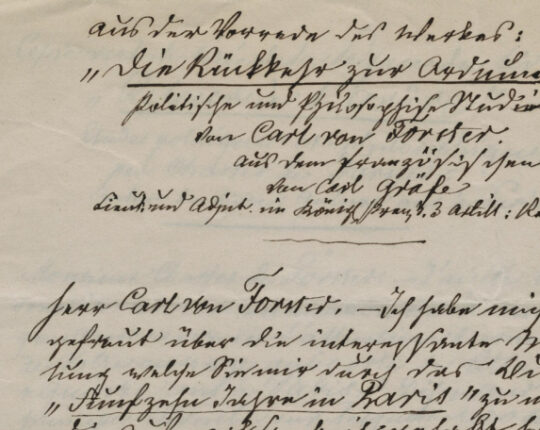 aus der Vorrede des Werkes:
„Die Rückkehr zur Ordnun
Politische und Philosophische Studi
von Carl von Forster.
aus dem Französischen
von Carl Gräfe
Lieut. und Adjut. im Königl. Preuß. 3 Artill:
Herr Carl von Forster. — Ich habe mi
gefreut über die interessante M
lung welche Sie mir durch das
„Funfzehn Jahre in Paris" zu